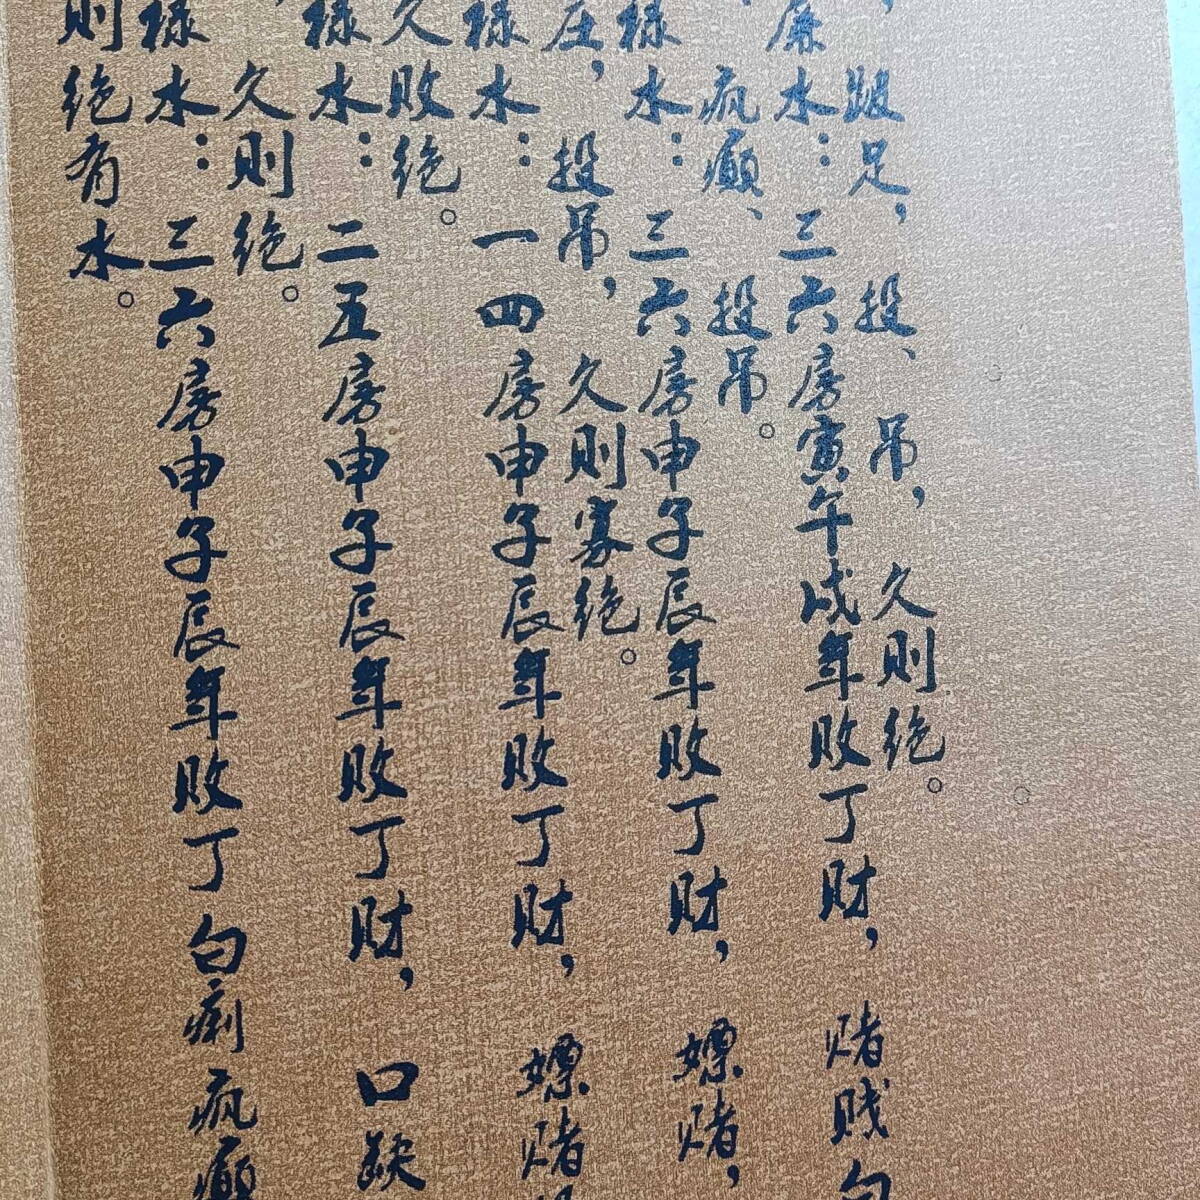 跛足，投、吊，久则绝。
廉水：三六房寅午戌年败丁财，赌贱
疯癫、投吊。
禄水：三六房申子辰年败丁财，嫖赌，
投吊，久则寡绝。
禄水：一四房申子辰年败丁财，嫖赌
久败绝。
禄水：二五房申子辰年败丁财，口缺
久则绝。
禄水：三六房申子辰年败丁白痢疯癫
则绝有水。